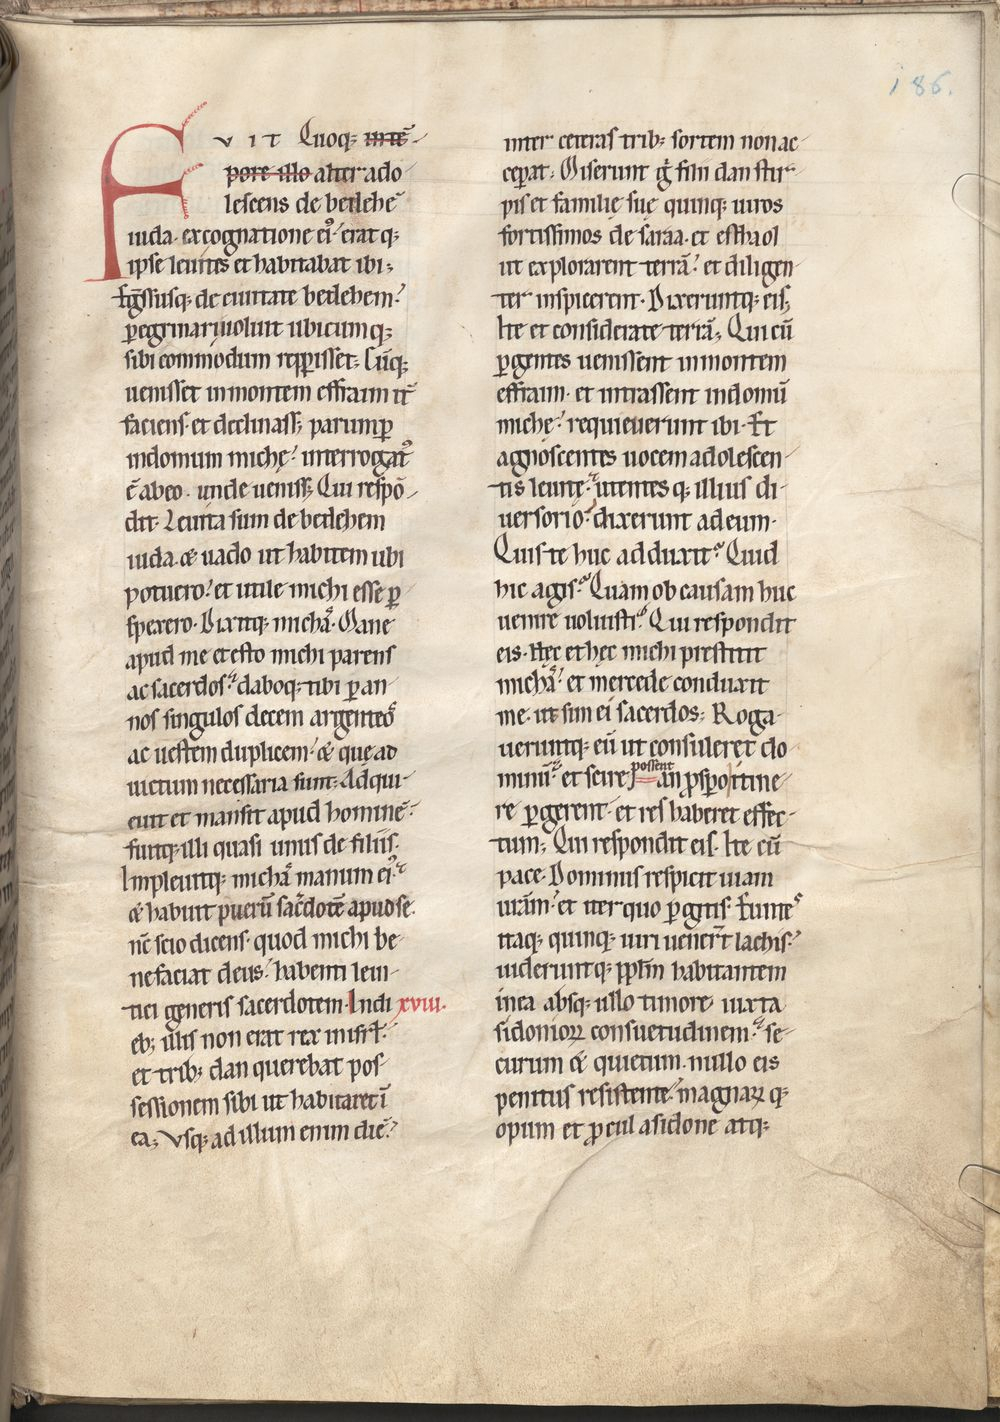 186.
FVIT Quoq; in tē-
pore illo alter ado
lescens de betlehē
iuda. ex cognatione ei᾽ erat q;
ipse leuites et habitabat ibi;
Eg̃ssusq; de ciuitate betlehem.
ꝑegrinari uoluit ubicumq;
sibi commodum repꝑisset; Cūq;
uenisset in montem effraim it̄
faciens. et declinass; parumꝑ
in domum michę. interrogat᾽
ē ab eo. unde ueniss; Qui respō-
dit. Leuita sum de betlehem
iuda. & uado ut habitem ubi
potuero. et utile michi esse ꝑ
spexero. Dixitq; michā. Mane
apud me et esto michi parens
ac sacerdos. daboq; tibi ꝑ an
nos singulos decem argenteos
ac uestem duplicem. & que ad
uictum necessaria sunt; Adqui-
euit et mansit apud hominē.
fuitq; illi quasi unus de filiis.
Impleuitq; michā manum ei᾽.
& habuit puerū sac̄dotē apud se.
nc̄ scio dicens. quod michi be-
nefaciat deus. habenti leui-
tici generis sacerdotem. Indi xviii.
eb; illis non erat rex in isrl̄.
et trib; dan querebat pos-
sessionem sibi ut habitaret ī
ea; Vsq; ad illum enim diē.
inter ceteras trib; sortem non ac-
ceꝑat. Miserunt g̊ filii dan stir-
pis et familię suę quinq; uiros
fortissimos de saraa. et esthaol
ut explorarent terrā. et diligen-
ter inspicerent. Dixeruntq; eis;
Ite et considerate terrā; Qui cū
ꝑgentes uenissent in montem
effraim. et intrassent in domū
michę. requieuerunt ibi. Et
agnoscentes uocem adolescen-
tis leuite. utentes q; illius di-
uersorio. dixerunt ad eum.
Quis te huc adduxit? Quid
hic agis? Quam ob causam huc
uenire uoluisti? Qui respondit
eis. Hec et hęc michi prestitit
michā. et mercede conduxit
me. ut sim ei sacerdos; Roga-
ueruntq; eū ut consuleret do-
minū. et scire possent an ꝓspo itine-
re ꝑgerent. et res haberet effec-
tum; Qui respondit eis. Ite cū
pace. Dominus respicit uiam
urām. et iter quo ꝑgitis. Euntes
itaq; quinq; uiri uener̄t lachis.
uideruntq; ppl̄m habitantem
in ea absq; ullo timore iuxta
sidonioꝝ consuetudinem. se-
curum & quietum. nullo eis
penitus resistente. magnaꝝ q;
opum et ꝓcul a sidone atq;